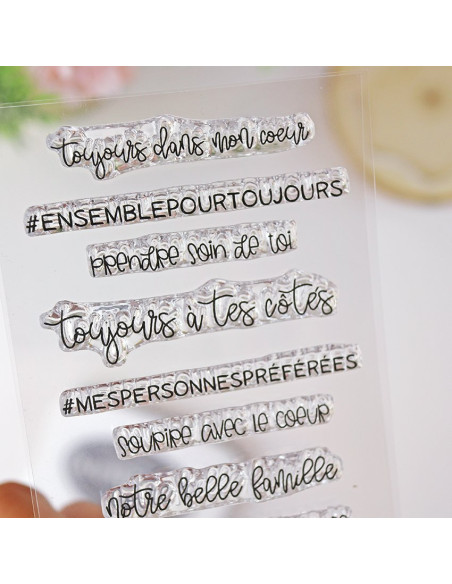 toujours dans mon coeur
#ENSEMBLEPOURTOUJOURS
prendre soin de toi
toujours à tes côtés
#MESPERSONNESPRÉFÉRÉES
sourire avec le coeur
notre belle famille